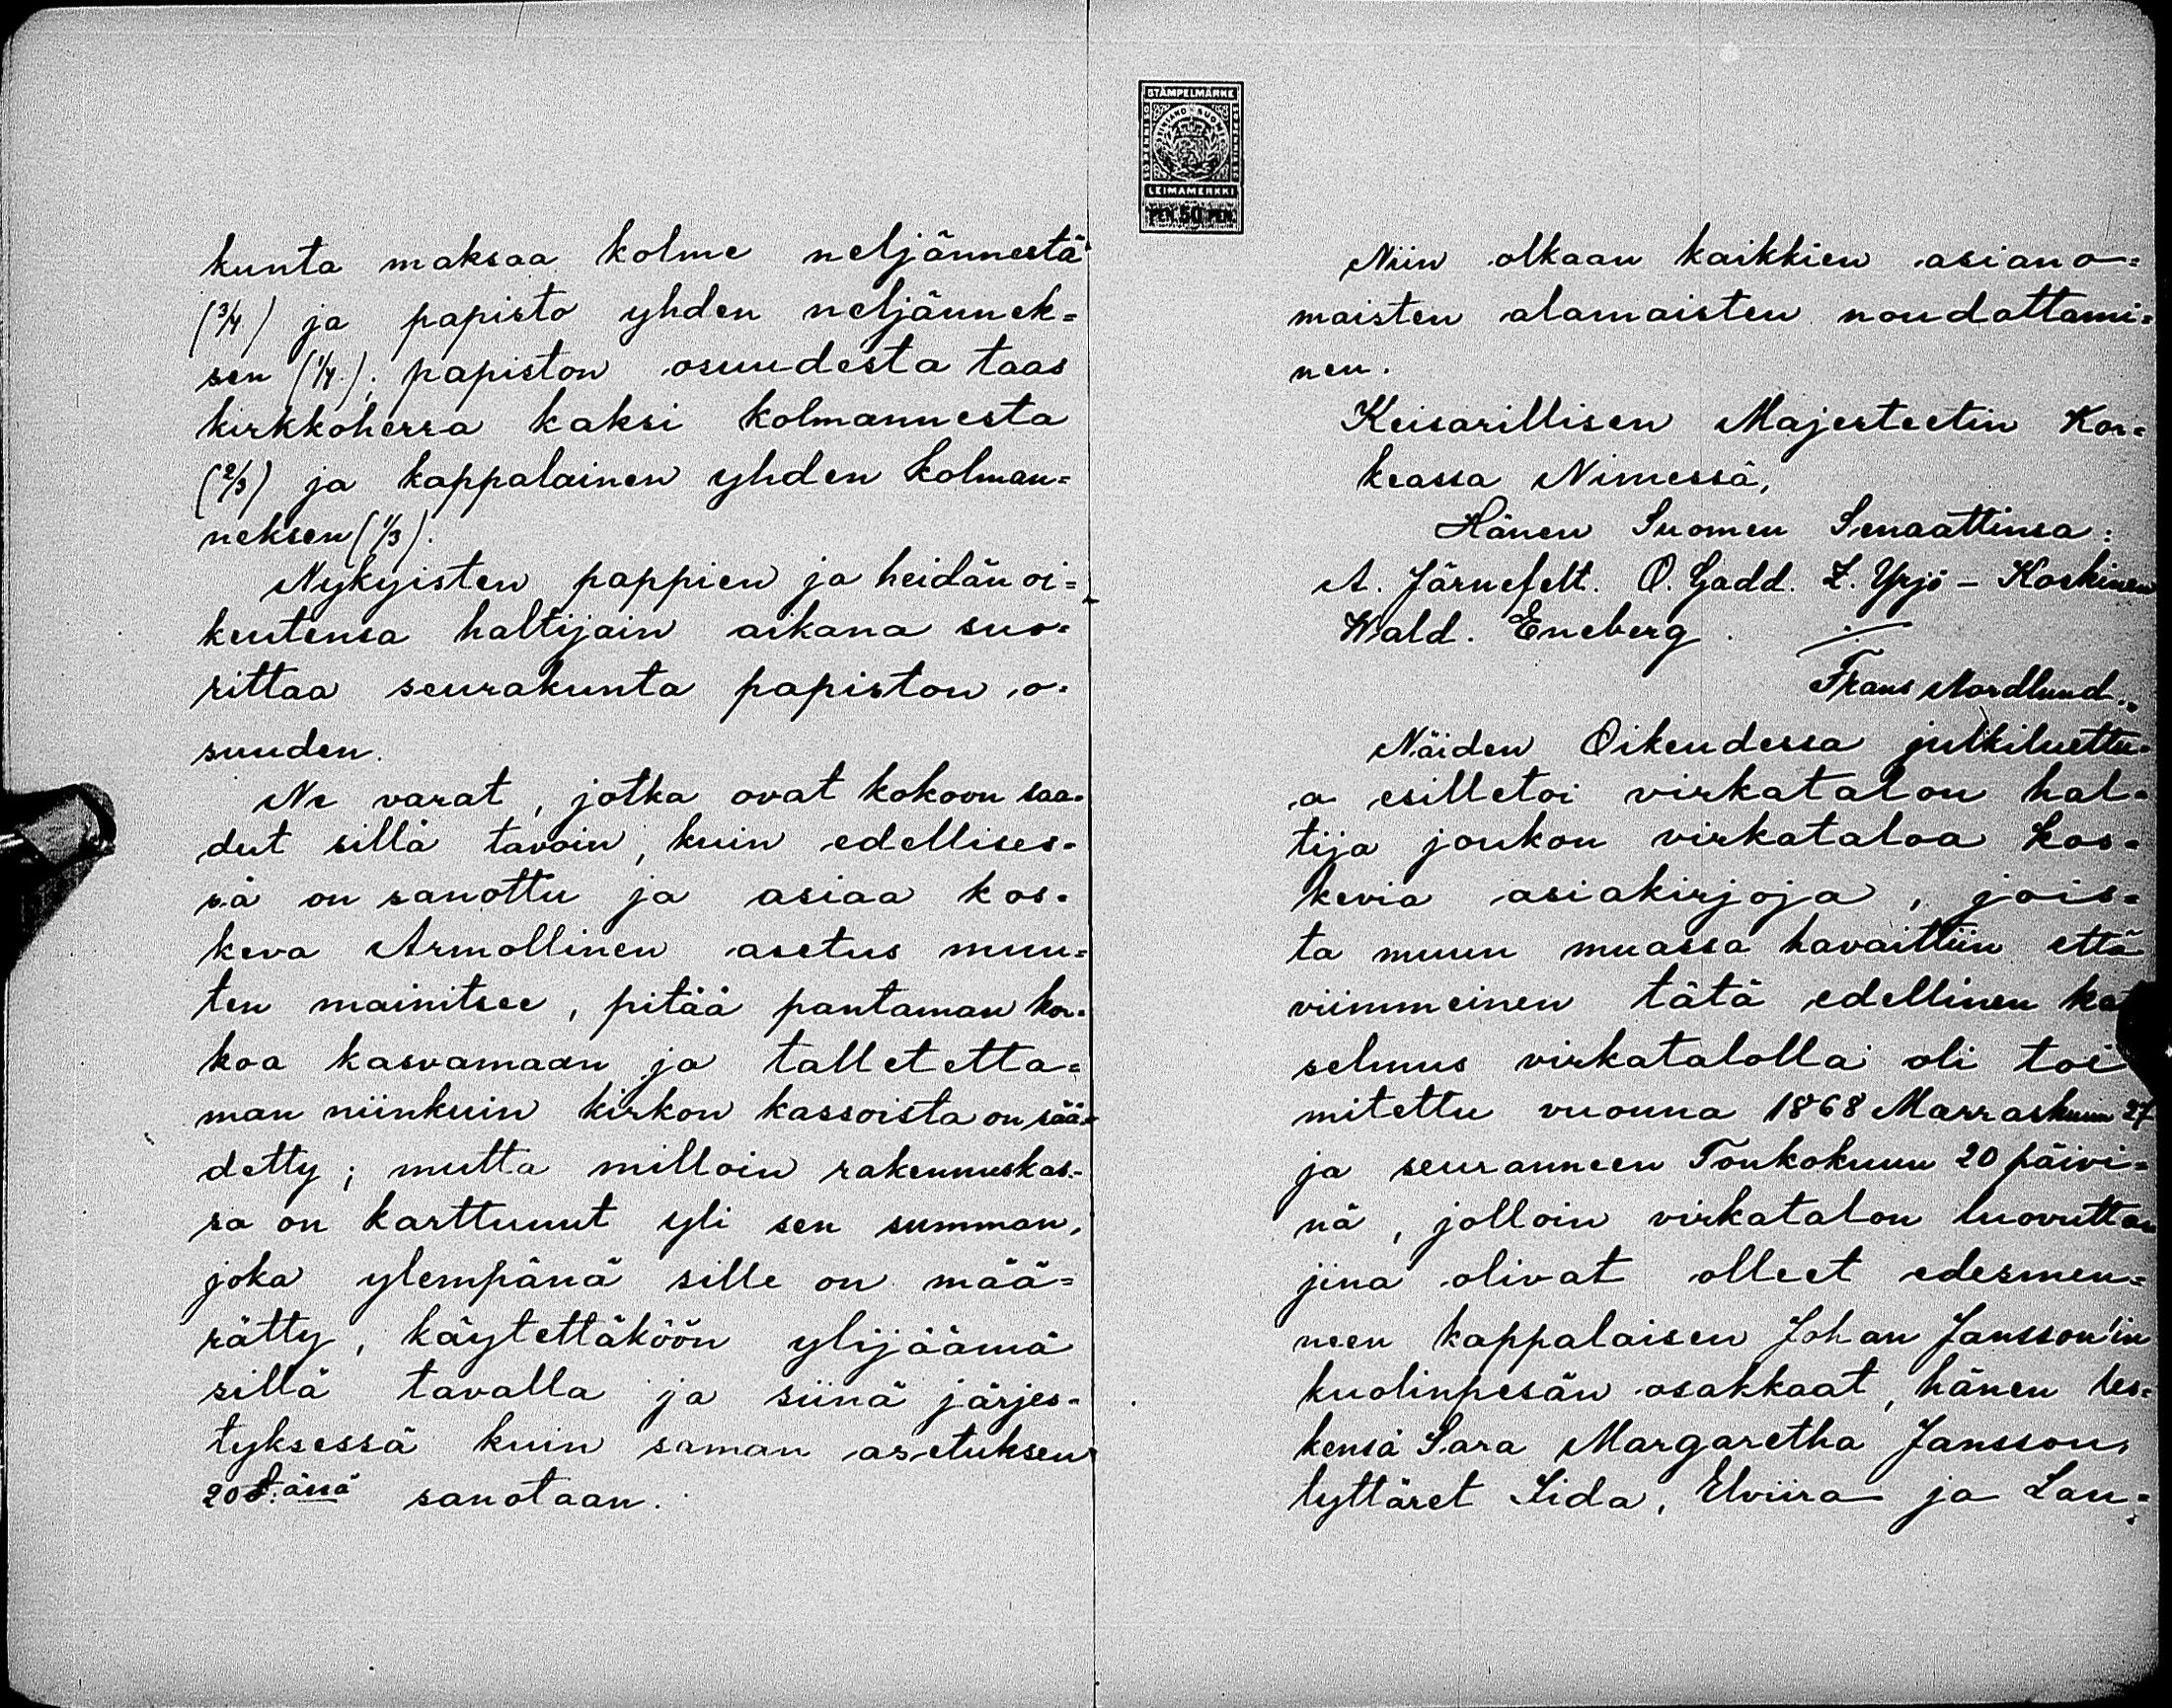 kunta maksaa kolme neljännestä
(3/4) ja papisto yhden neljännek=
sen (1/4); papiston osuudesta taas
kirkkoherra kaksi kolmannesta
(2/3) ja kappalainen yhden kolman=
neksen (1/3).
Nykyisten pappien ja heidän oi=
keutensa haltijain aikana suo=
rittaa seurakunta papiston o=
suuden.
Ne varat, jotka ovat kokoon saa=
dut sillä tavoin, kuin edellises=
sä on sanottu ja asiaa kos=
keva Armollinen asetus muu=
ten mainitsee, pitää pantaman kor=
koa kasvamaan ja talletetta=
man niinkuin kirkon kassoista on sää=
detty; mutta milloin rakennuskas=
sa on karttunut yli sen summan,
joka ylempänä sille on mää=
rätty, käytettäköön ylijäämä
sillä tavalla ja siinä järjes=
tyksessä kuin saman asetuksen
20 §:ässä sanotaan.
STÄMPELMÄRKE
FINLAND SUOMI
50 PENNIÄ
LEIMAMERKKI
PEN. 50 PEN.
Niin olkaan kaikkien asiano=
maisten alamaisten noudattami=
nen.
Keisarillisen Majesteetin Kor=
keassa Nimessä,
Hänen Suomen Senaattinsa:
A. Järnefelt. O. Gadd. Z. Yrjö-Koskinen
Wald. Eneberg.
Frans Nordlund."
Näiden Oikeudessa julkiluettu=
a esilletoi virkatalon hal=
tija joukon virkataloa kos=
kevia asiakirjoja, jois=
ta muun muassa havaittiin että
viimmeinen tätä edellinen kat
selmus virkatalolla oli toi
mitettu vuonna 1868 Marraskuun 27
ja seuranneen Toukokuun 20 päivi=
nä, jolloin virkatalon luovutta
jina olivat olleet edesmen=
neen kappalaisen Johan Jansson'in
kuolinpesän osakkaat, hänen les=
kensä Sara Margaretha Jansson,
tyttäret Iida, Elviira ja Lau=